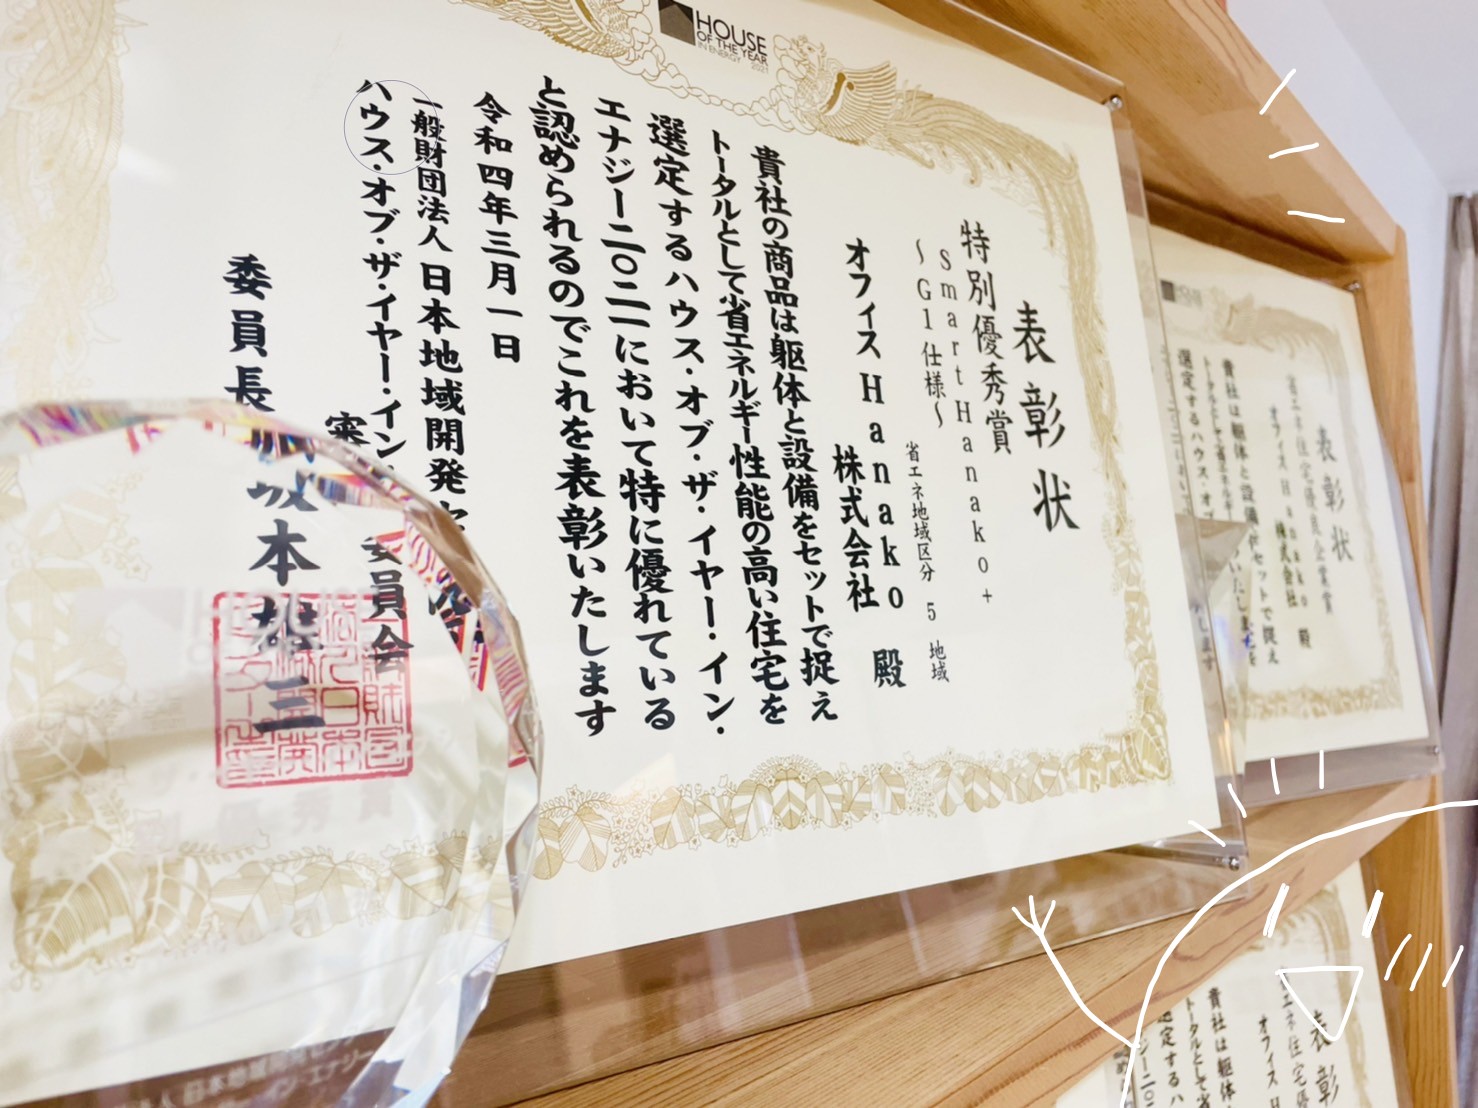 HOUSE
OF THE YEAR
IN ENERGY 2021
表彰状
特別優秀賞
Smart Hanako+
~G1仕様~
省エネ地域区分 5 地域
オフィスHanako
株式会社 殿
貴社の商品は躯体と設備をセットで捉え
トータルとして省エネルギー性能の高い住宅を
選定するハウス・オブ・ザ・イヤー・イン・
エナジー二〇二一において特に優れている
と認められるのでこれを表彰いたします
令和四年三月一日
一般財団法人日本地域開発
ハウス・オブ・ザ・イヤー・イン
委員会
委員長
坂本雄三
表彰状
省エネ住宅優良企業賞
オフィスHanako
株式会社 殿
貴社は躯体と設備をセットで捉え
トータルとして省エネルギー
選定するハウス・オブ
表彰
エネ住宅優
オフィスH
貴社は躯体
トータルとして省
選定するハ